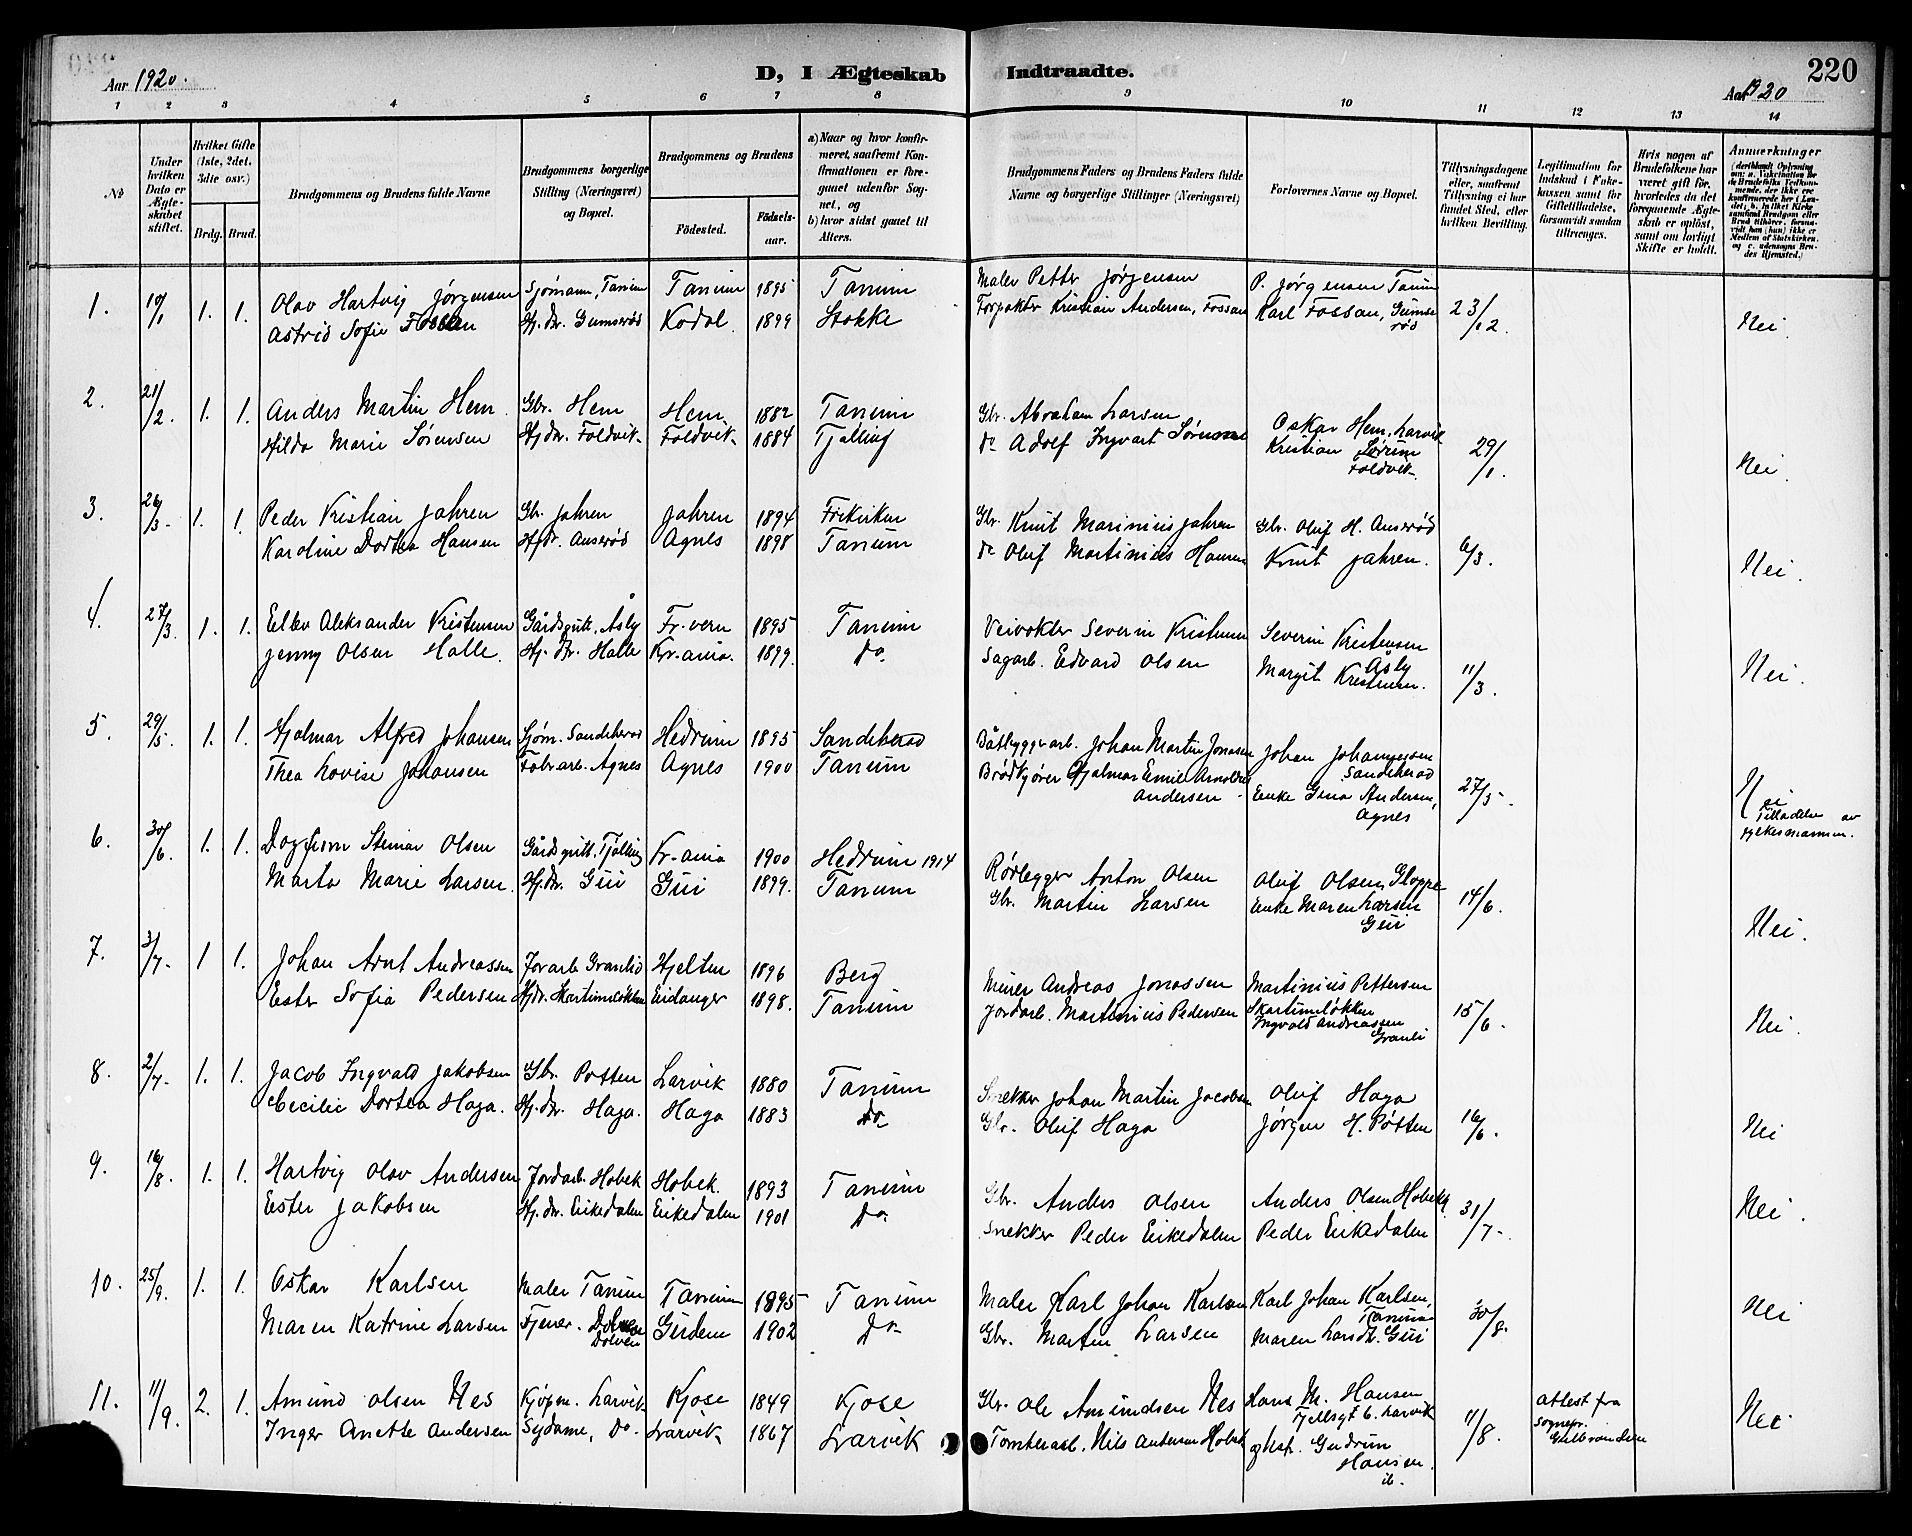 220
Aar 1920.
D, I Ægteskab Indtraadte.
Aar 1920
1 2 3 4 5 6 7 8 9 10 11 12 13 14
No
Under hvilken Dato er Ægteskabet stiftet.
Hvilket Gifte (1ste, 2det. 3die osv.)
Brdg. Brud.
Brudgommens og Brudens fulde Navne
Brudgommens borgerlige Stilling (Næringsvei) og Bopæl.
Brudgommens og Brudens
Födested. Födsels-aar.
a) Naar og hvor konfirmeret, saafremt Konfirmationen er foregaaet udenfor Sognet, og
b) hvor sidst gaaet til Alters.
Brudgommens Faders og Brudens Faders fulde Navne og borgerlige Stillinger (Næringsvei)
Forlovernes Navne og Bopæl.
Tillysningsdagene eller, saafremt Tillysning ei har fundet Sted, efter hvilken Bevilling.
Legitimation for Indskud i Enkekassen samt for Giftetilladelse, forsaavidt saadan tiltrænges.
Hvis nogen af Brudefolkene har været gift för, hvorledes da det foregaaende Ægteskab er oplöst, samt om lovligt Skifte er holdt.
Anmærkninger
1. 10/1 1. 1. Olav Hartvig Jørgensen Sjømann, Tanum Tanum 1895 Tanum Maler Petter Jørgensen P. Jørgensen Tanum 23/12 Nei.
Astrid Sofie Fossan Hj. dr. Gumserød Kodal. 1899 Stokke Forpakter Kristian Andersen, Fossan Karl Fossan, Gumserød
2. 21/2 1. 1. Anders Martin Hem. Gbr. Hem Hem 1882 Tanum Gbr. Abraham Larsen Oskar Hem, Larvik 29/1. Nei.
Hilda Marie Sørensen Hj. dr. Foldvik Foldvik 1884 Tjølling do Adolf Ingvart Kristian Sørum Foldvik.
3. 26/3. 1. 1. Peder Kristian Jahren Gb. Jahren Jahren 1894 Frikirken Gbr. Knut Marinius Jahren Gbr. Oluf H. Amserød 6/3. Nei.
Karoline Dortea Hansen Hjdr. Amserød Agnes 1898 Tanum do Oluf Martinius Hansen Knut Jahren.
4. 27/3. 1. 1. Ellev Aleksander Kristensen Gårdsgutt, Åsly Fr. vern 1895 Tanum Veivokter Severin Kristensen Severin Kristensen Åsly 11/3. Nei.
Jenny Olsen Halle. Hj. dr. Halle Kr. ania. 1899. Do. Sagarb. Edvard Olsen Margit Kristensen.
5. 29/5. 1. 1. Hjalmar Alfred Johansen Sjøm. Sandeherad Hedrum 1895 Sandeherad Båtbyggerarb. Johan Martin Jonasen Johan Johannessen Sandeherad 27/5. Nei
Thea Lovise Johansen Fabr. arb. Agnes Agnes 1900 Tanum Brødkjører Hjalmar Emil Arnoldus Andersen Enke Gina Andersen, Agnes Tilladelse av fylkesmannen.
6. 30/6. 1. 1. Dagfinn Steinar Olsen Gårdsgutt. Tjølling Kr. ania 1900 Hedrum 1914 Rørlegger Anton Olsen Oluf Olsen, Gloppe 14/6. Nei.
Marta Marie Larsen. Hj. dr. Gui Gui 1899. Tanum Gbr. Martin Larsen Enke Maren Larsen Gui
7. 3/7. 1 1. Johan Arnt Andreassen Jorarb Granlid Hjelten 1896 Berg Murer Andreas Jonassen Martinius Pettersen Skartumløkken 15/6. Nei.
Ester Sofia Pedersen Hjdr. Skartumløkken Eidanger 1898. Tanum Jordarb. Martinius Pedersen Ingvald Andreassen Granli
8. 2/7. 1. 1. Jacob Ingvald Jakobsen Gbr. Potten Larvik 1880 Tanum Snekker Johan Martin Jacobsen Oluf Haga 16/6. Nei
Cecilie Dortea Haga. Hj. dr. Haga. Haga 1883 do Gbr. Oluf Haga Jørgen H. Pøtten
9. 16/8. 1. 1. Hartvig Olav Andersen Jordarb. Hobek Hobek. 1893 Tanum Gbr. Anders Olsen Anders Olsen Hobek 31/7. Nei.
Ester Jakobsen Hj. dr. Eikedalen Eikedalen 1901 Do. Snekker Peder Eikedalen Peder Eikedalen
10. 25/9. 1. 1. Oskar Karlsen Maler Tanum Tanum 1895 Tanum Maler Karl Johan Karlsen Karl Johan Karlsen, Tanum 30/8. Nei
Maren Katrine Larsen Tjener. Dolven Gurdem 1902 Do Gbr. Martin Larsen Maren Gui
11. 11/9. 2. 1. Amund Olsen Nes Kjøpm. Larvik Kjose 1849 Kjose Gbr. Ole Amundsen Nes Hans M. Hansen Larvik 11/8. Attest fra sognepr. Gulbrandsen Nei
Inger Anette Andersen Sydame, Do. Larvik 1867 Larvik Tomtearb. Nils Andersen Hobek Gudrun Hansen ib.